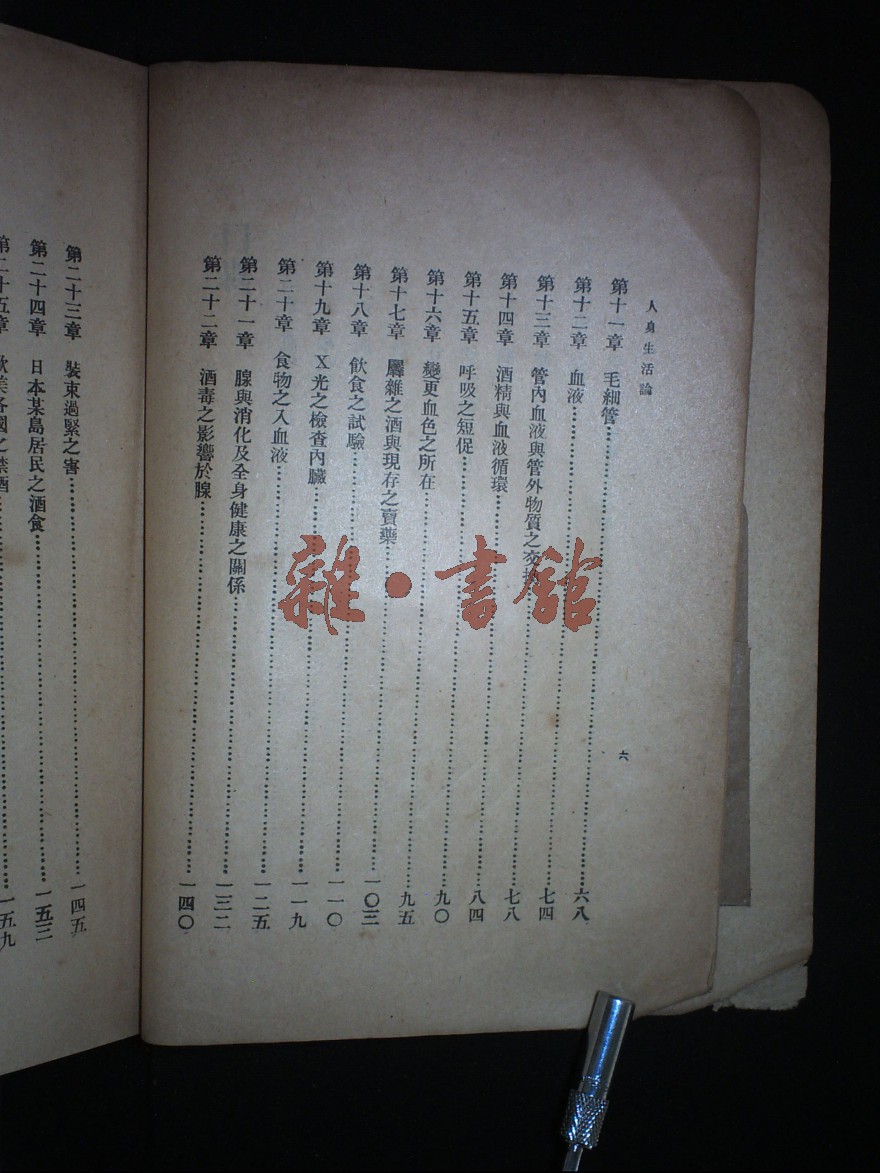 人身生活論
六
第十一章 毛細管…………六八
第十二章 血液…………七四
第十三章 管內血液與管外物質之交換…………七八
第十四章 酒精與血液循環…………八四
第十五章 呼吸之短促…………九〇
第十六章 變更血色之所在…………九五
第十七章 羼雜之酒與現存之賣藥…………一〇三
第十八章 飲食之試驗…………一一〇
第十九章 X光之檢查內臟…………一一九
第二十章 食物之入血液…………一二五
第二十一章 腺與消化及全身健康之關係…………一三二
第二十二章 酒毒之影響於腺…………一四〇
第二十三章 裝束過緊之害…………一四五
第二十四章 日本某島居民之酒食…………一五三
第二十五章 歐美各國之禁酒…………一五九
雜·書館